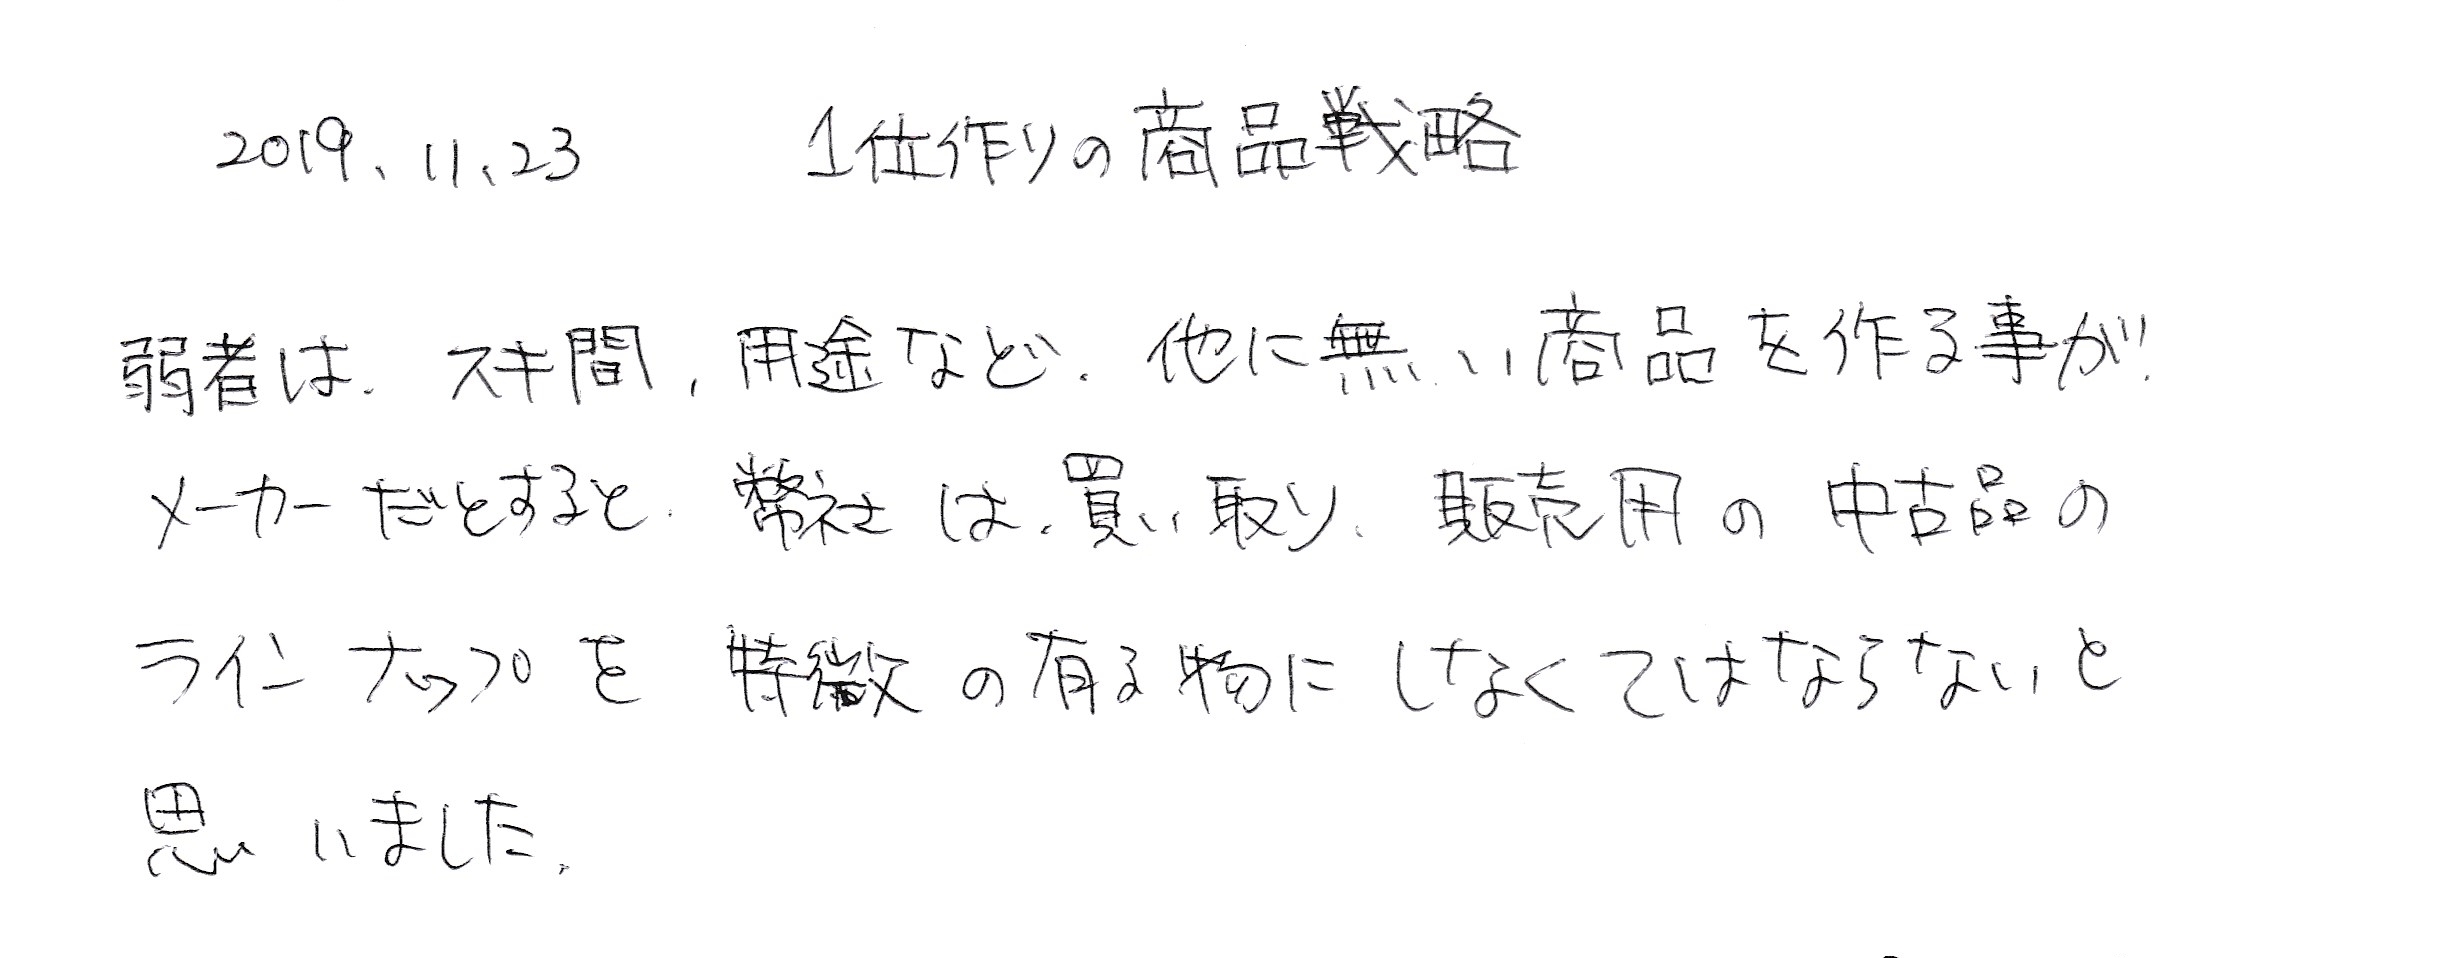 2019、11、23　1位作りの商品戦略
弱者は、スキ間、用途など、他に無い商品を作る事が
メーカーだとすると、幣社は、買い取り、販売用の中古品の
ラインナップを特徴の有る物にしなくてはならないと
思いました。